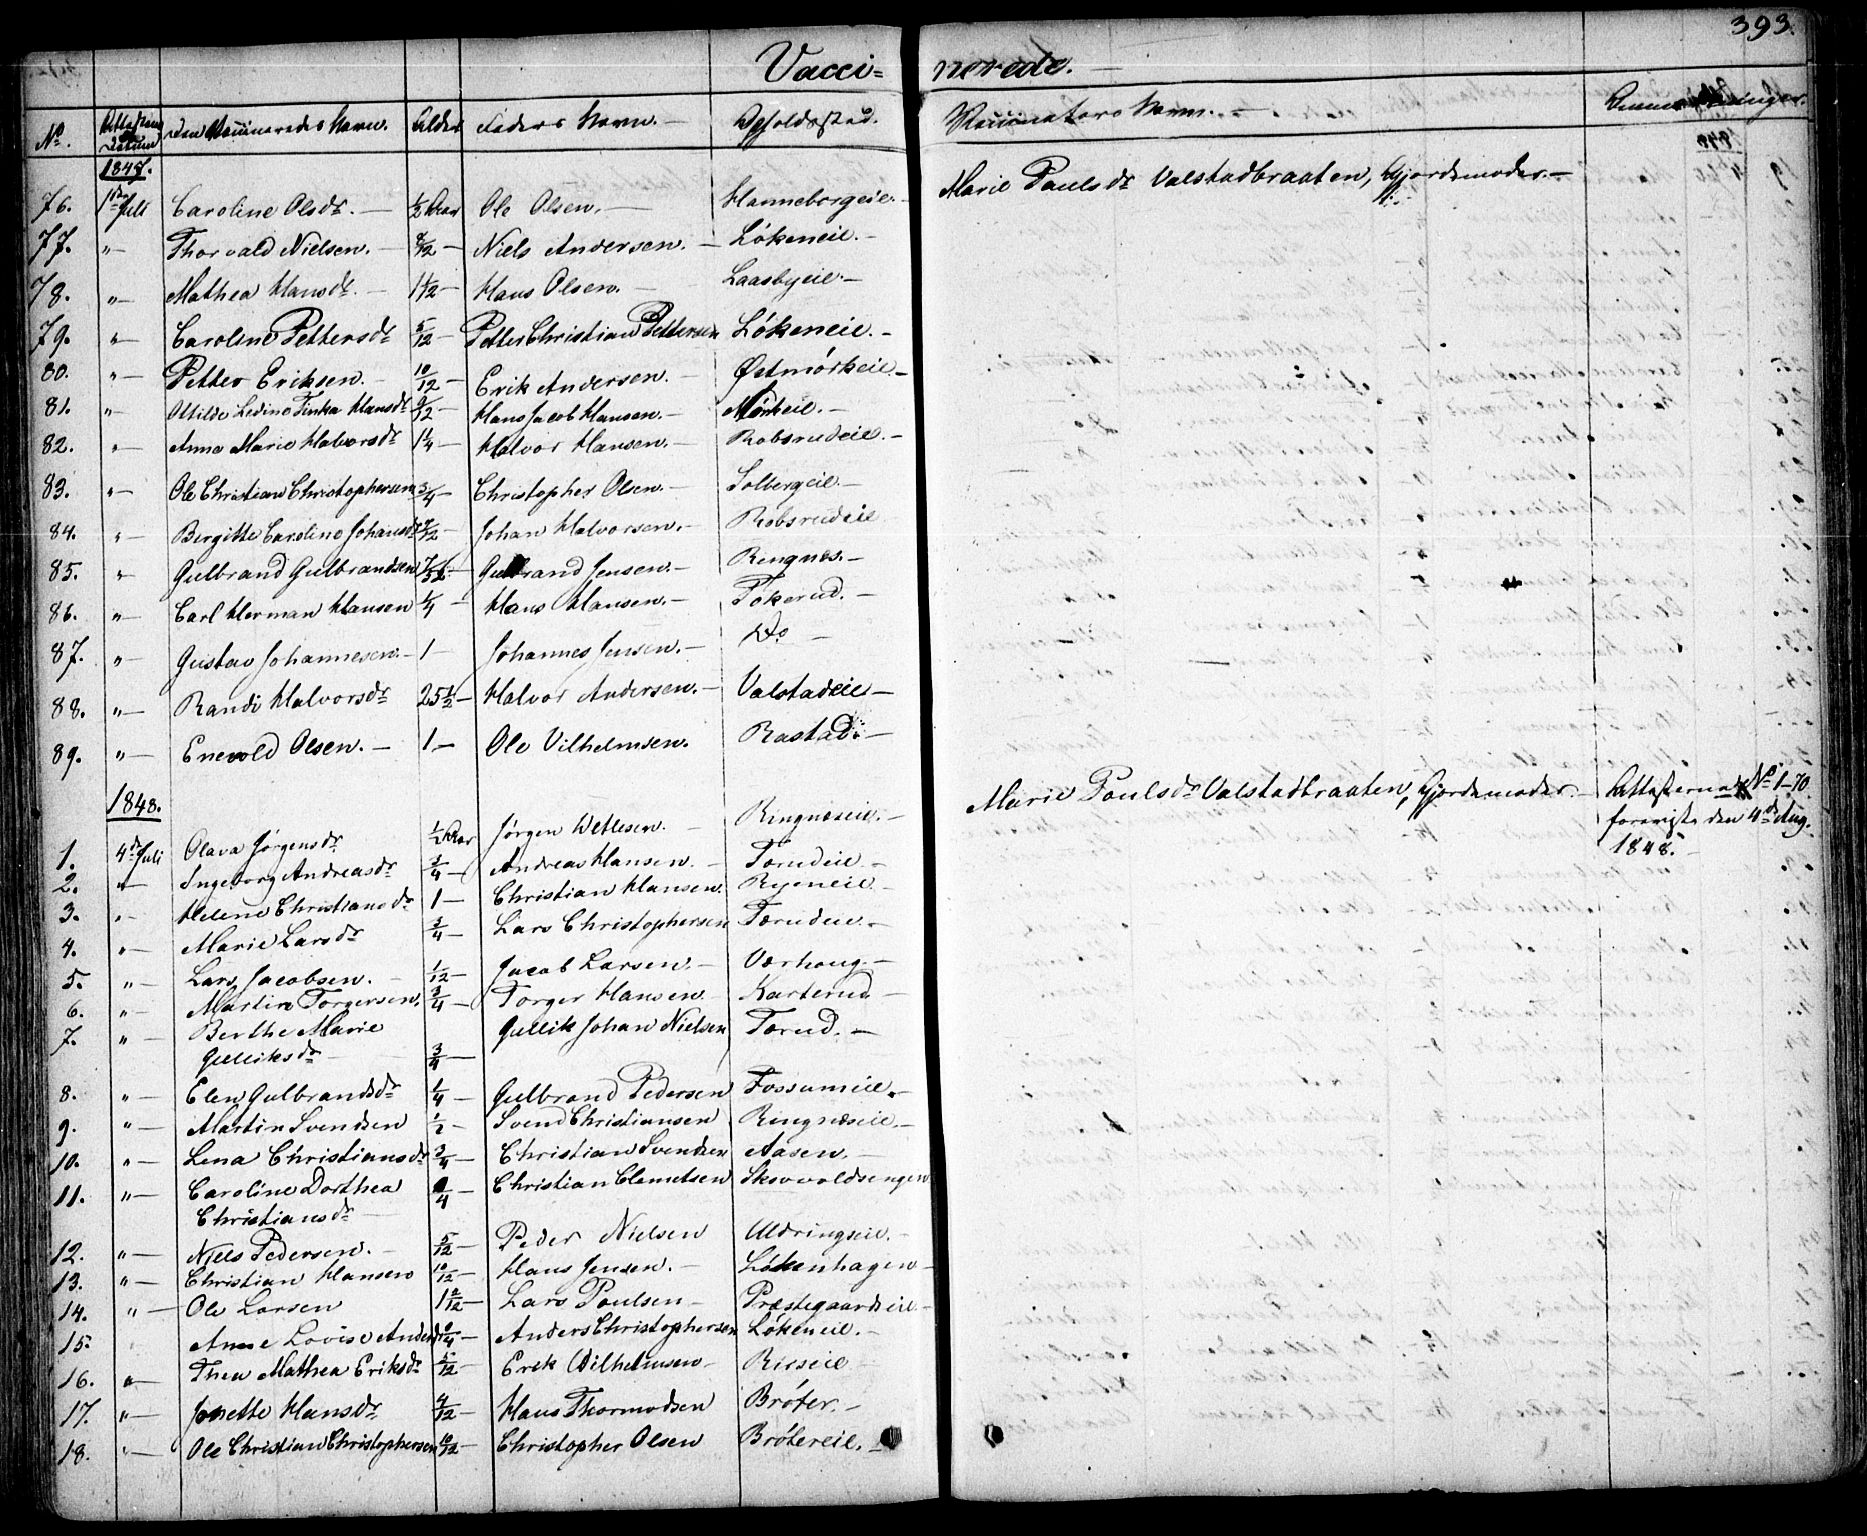 393.
Vacci= nerede.
No. Attestens Datum Den Vaccineredes Navn. Alder Faders Navn. Opholdssted. Vaccinateurs Navn. Anmærkninger.
1847.
76. 1ste Juli Caroline Olsdr. — 1/2 Aar Ole Olsen. — Hanneborgeie. — Marie Paulsdr Valstadbraaten, Gjordemoder. —
77. " — Thorvald Nielsen. — 8/12 — Niels Andersen. — Lökeneie. —
78. " — Mathea Hansdr. — 1 1/2 — Hans Olsen. — Laasbyeie. —
79. " — Caroline Pettersdr 5/12 — Petter Christian Pettersen Lökeneie. —
80. " — Petter Eriksen. — 10/12 — Erik Andersen. — Østmörkeie. —
81. " — Otilde Ledine Tinka Hansdr 9/12 — Hans Jacob Hansen. — Mörkeie. —
82. " — Anne Marie Halvorsdr 1 1/4 — Halvor Hansen. — Robsrudeie. —
83. " — Ole Christian Christophersen 3/4 — Christopher Olsen. — Solbergeie. —
84. " — Birgitte Caroline Johansdr /12 — Johan Halvorsen. — Robsrudeie
85. " Gulbrand Gulbrandsen 7/52 — Gulbrand Jensen. — Ringnes. —
86. " — Carl Herman Hansen 1/4 — Hans Hansen. — Tokerud. —
87. " — Gustav Johannesen. — 1 — Johannes Jensen. — Do —
88. " — Randi Halvorsdr 25 1/2 — Halvor Andersen. — Valstadeie —
89. " — Enevold Olsen. — 1 — Ole Vilhelmsen. Rastad. —
1848. Marie Poulsdr Valstadbraaten, Gjordemoder. — Attesterne No 1–70
forevist den 4de Aug.
1848. —
1. 4de Juli Olava Jørgensdr. 1/2 Aar Jørgen Detlesen. — Ringnæseie. —
2. " — Ingeborg Andreasdr 3/4 — Andreas Hansen. — Torudeie —
3. " — Helene Christiansdr 1 — Christian Hansen. Ryeneie —
4. " — Marie Larsdr 3/4 — Lars Christophersen Tørudeie. —
5. " — Lars Jacobsen. — 1/12 — Jacob Larsen. — Værhoug. —
6. " — Martin Torgersen. 3/4 — Torger Hansen — Karterud —
7. " — Berthe Marie Gullik Johan Nielsen Tørud. —
Gulliksdr — 3/4 —
8. " — Elen Gulbrandsdr 1/4 — Gulbrand Pedersen Fossumeie. —
9. " — Martin Svendsen 1/2 — Svend Christiansen Ringnæseie. —
10. " — Lena Christiansdr 3/4 — Christian Svendsen Aasen. —
11. " — Caroline Dorthea /4 — Christian Clemetsen Skovoldsengen
Christiansdr —
12. " — Niels Pedersen. — 5/12 — Peder Nielsen Uldringseie. —
13. " — Christian Hansen 10/12 — Hans Jensen. — Lökenhagen —
14. " — Ole Larsen 1 2/12 — Lars Poulsen — Præstegaardseie —
15. Anne Lovise Andersdr /4 — Anders Christophersen Lökeneie. —
16. " — Thea Mathea Eriksdr 5/12 — Erik Wilhelmsen — Riiseie —
17. " — Jonette Hansdr 4/12 — Hans Thormodsen Bröter. —
18. " — Ole Christian Christophersen 10/12 — Christopher Olsen Brötereie. —